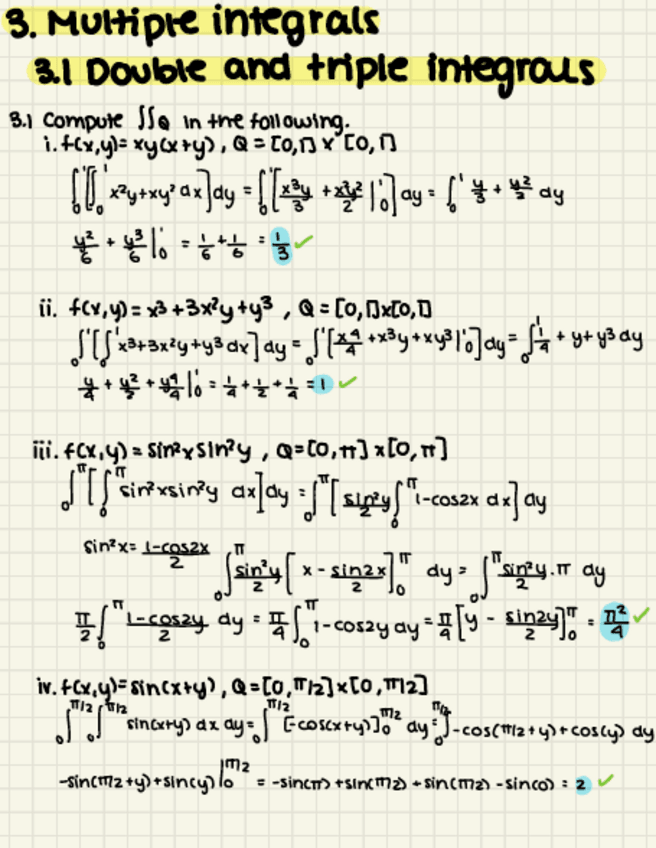 3. Multiple integrals
3.1 Double and triple integrals
3.1 Compute ∬Q in the following.
i. f(x,y)= xy(x+y) , Q = [0,1] x [0,1]
∫₀¹[∫₀¹ x²y+xy² dx]dy = ∫₀¹[x³y/3 + x²y²/2 |₀¹] dy = ∫₀¹ y/3 + y²/2 dy
y²/6 + y³/6 |₀¹ = 1/6 + 1/6 = 1/3 ✓
ii. f(x,y) = x³+3x²y+y³ , Q = [0,1]x[0,1]
∫₀¹[∫₀¹ x³+3x²y+y³ dx] dy = ∫₀¹[x⁴/4 +x³y+xy³|₀¹]dy = ∫₀¹ 1/4 + y+ y³ dy
y/4 + y²/2 + y⁴/4 |₀¹ = 1/4 + 1/2 + 1/4 = 1 ✓
iii. f(x,y) = sin²x sin²y , Q=[0,π] x[0,π]
∫₀^π [∫₀^π sin²xsin²y dx]dy = ∫₀^π [sin²y/2 ∫₀^π 1-cos2x dx] dy
sin²x= 1-cos2x/2 ∫₀^π sin²y/2 [x - sin2x/2]₀^π dy = ∫₀^π sin²y/2 .π dy
π/2 ∫₀^π 1-cos2y/2 dy = π/4 ∫₀^π 1-cos2y dy = π/4 [y - sin2y/2]₀^π = π²/4 ✓
iv. f(x,y)= sin(x+y) , Q=[0,π/2]x[0,π/2]
∫₀^π/2 ∫₀^π/2 sin(x+y) dx dy= ∫₀^π/2 [-cos(x+y)]₀^π/2 dy = ∫₀^π/2 -cos(π/2+y)+cos(y) dy
-sin(π/2+y)+sin(y) |₀^π/2 = -sin(π) +sin(π/2) +sin(π/2) -sin(0) = 2 ✓